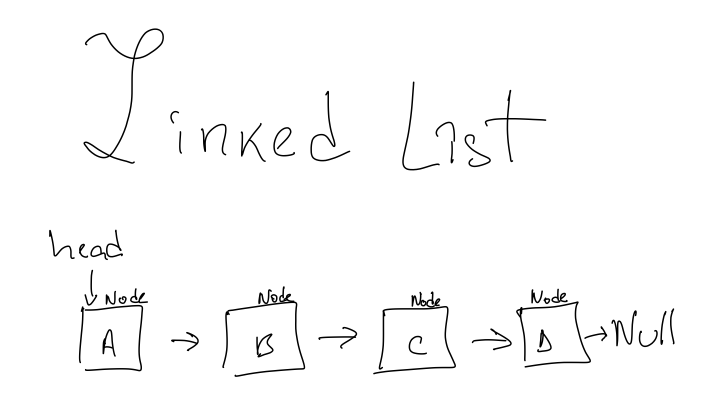 Linked List
head
Node Node Node Node
A → B → C → D → Null